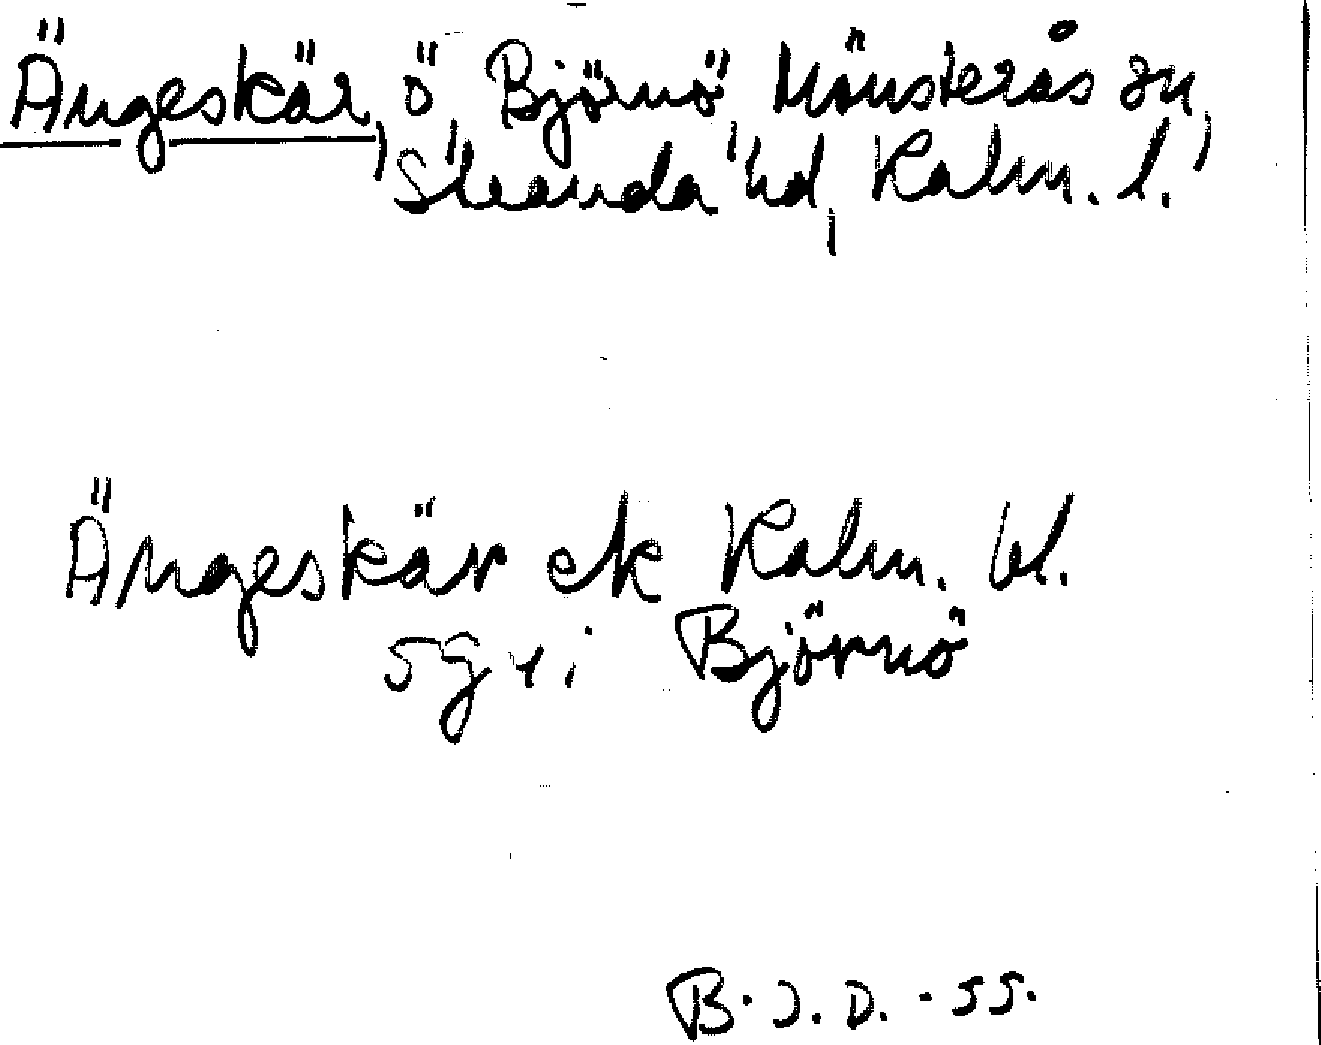 Ängeskär, ö Björnö, Mönsterås sn,
Stranda hd, Kalm. l.
Ängeskär ek Kalm. bl.
5g 4i Björnö
B.J.D. - 55.